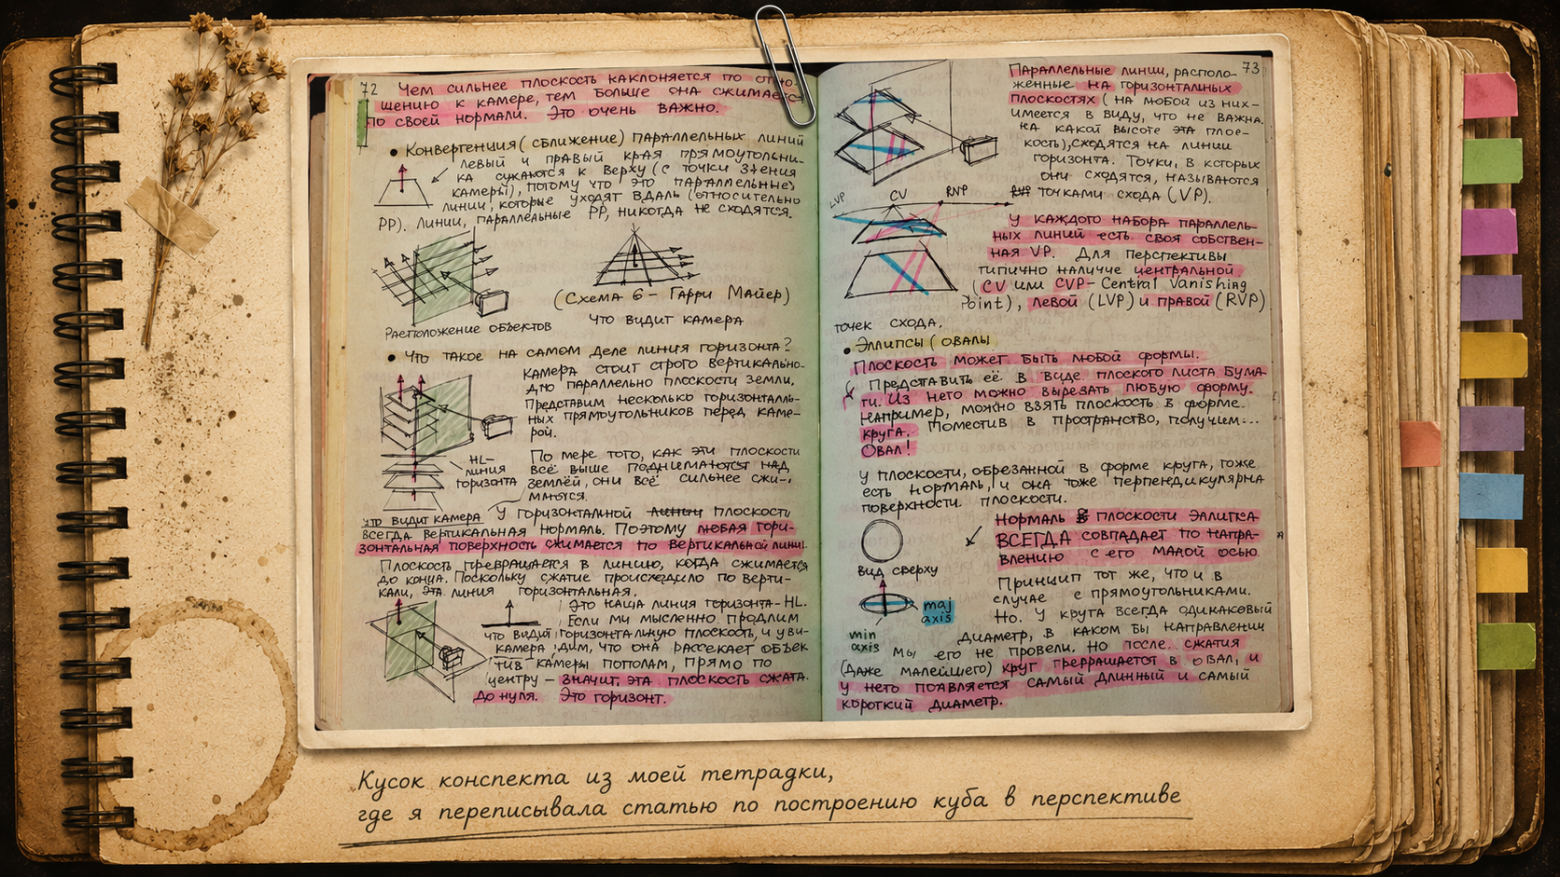 72
Чем сильнее плоскость наклоняется по отно-
шению к камере, тем больше она сжимается
по своей нормали. Это очень важно.
• Конвергенция (сближение) параллельных линий
левый и правый края прямоугольни-
ка сужаются к верху (с точки зрения
камеры), потому что это параллельные
линии, которые уходят вдаль (относительно
PP). Линии, параллельные PP, никогда не сходятся.
(Схема 6 - Гарри Майер)
Расположение объектов
что видит камера
• Что такое на самом деле линия горизонта?
Камера стоит строго вертикально-
параллельно плоскости земли.
Представим несколько горизонталь-
ных прямоугольников перед каме-
рой.
HL-
линия
горизонта
По мере того, как эти плоскости
всё выше поднимаются над
землёй, они всё сильнее сжи-
маются.
что видит камера
У горизонтальной линии плоскости
всегда вертикальная нормаль. Поэтому любая гори-
зонтальная поверхность сжимается по вертикальной линии.
Плоскость превращается в линию, когда сжимается
до конца. Поскольку сжатие происходило по верти-
кали, эта линия горизонтальная.
Это наша линия горизонта - HL.
Если мы мысленно продлим
что видит
камера
горизонтальную плоскость, и уви-
дим, что она рассекает объек
тив камеры пополам, прямо по
центру - значит, эта плоскость сжата
до нуля. Это горизонт.
73
Параллельные линии, располо-
женные на горизонтальных
плоскостях (на любой из них -
имеется в виду, что не важна
на какой высоте эта плос-
кость), сходятся на линии
горизонта. Точки, в которых
они сходятся, называются
точками схода (VP).
LVP
CV
RVP
У каждого набора параллель-
ных линий есть своя собствен-
ная VP. Для перспективы
типично наличие центральной
(CV или CVP - Central Vanishing
Point), левой (LVP) и правой (RVP)
точек схода.
• Эллипсы (овалы
Плоскость может быть любой формы.
Представить её в виде плоского листа бума-
ги. Из него можно вырезать любую форму.
Например, можно взять плоскость в форме
круга. Поместив в пространство, получим...
Овал!
У плоскости, обрезанной в форме круга, тоже
есть нормаль, и она тоже перпендикулярна
поверхности плоскости.
вид сверху
Нормаль плоскости эллипса
ВСЕГДА совпадает по напра-
влению с его малой осью
maj
axis
min
axis
Принцип тот же, что и в
случае с прямоугольниками.
Но. У круга всегда одинаковый
диаметр, в каком бы направлении
мы его не провели. Но после сжатия
(даже малейшего) круг превращается в овал, и
у него появляется самый длинный и самый
короткий диаметр.
Кусок конспекта из моей тетрадки,
где я переписывала статью по построению куба в перспективе